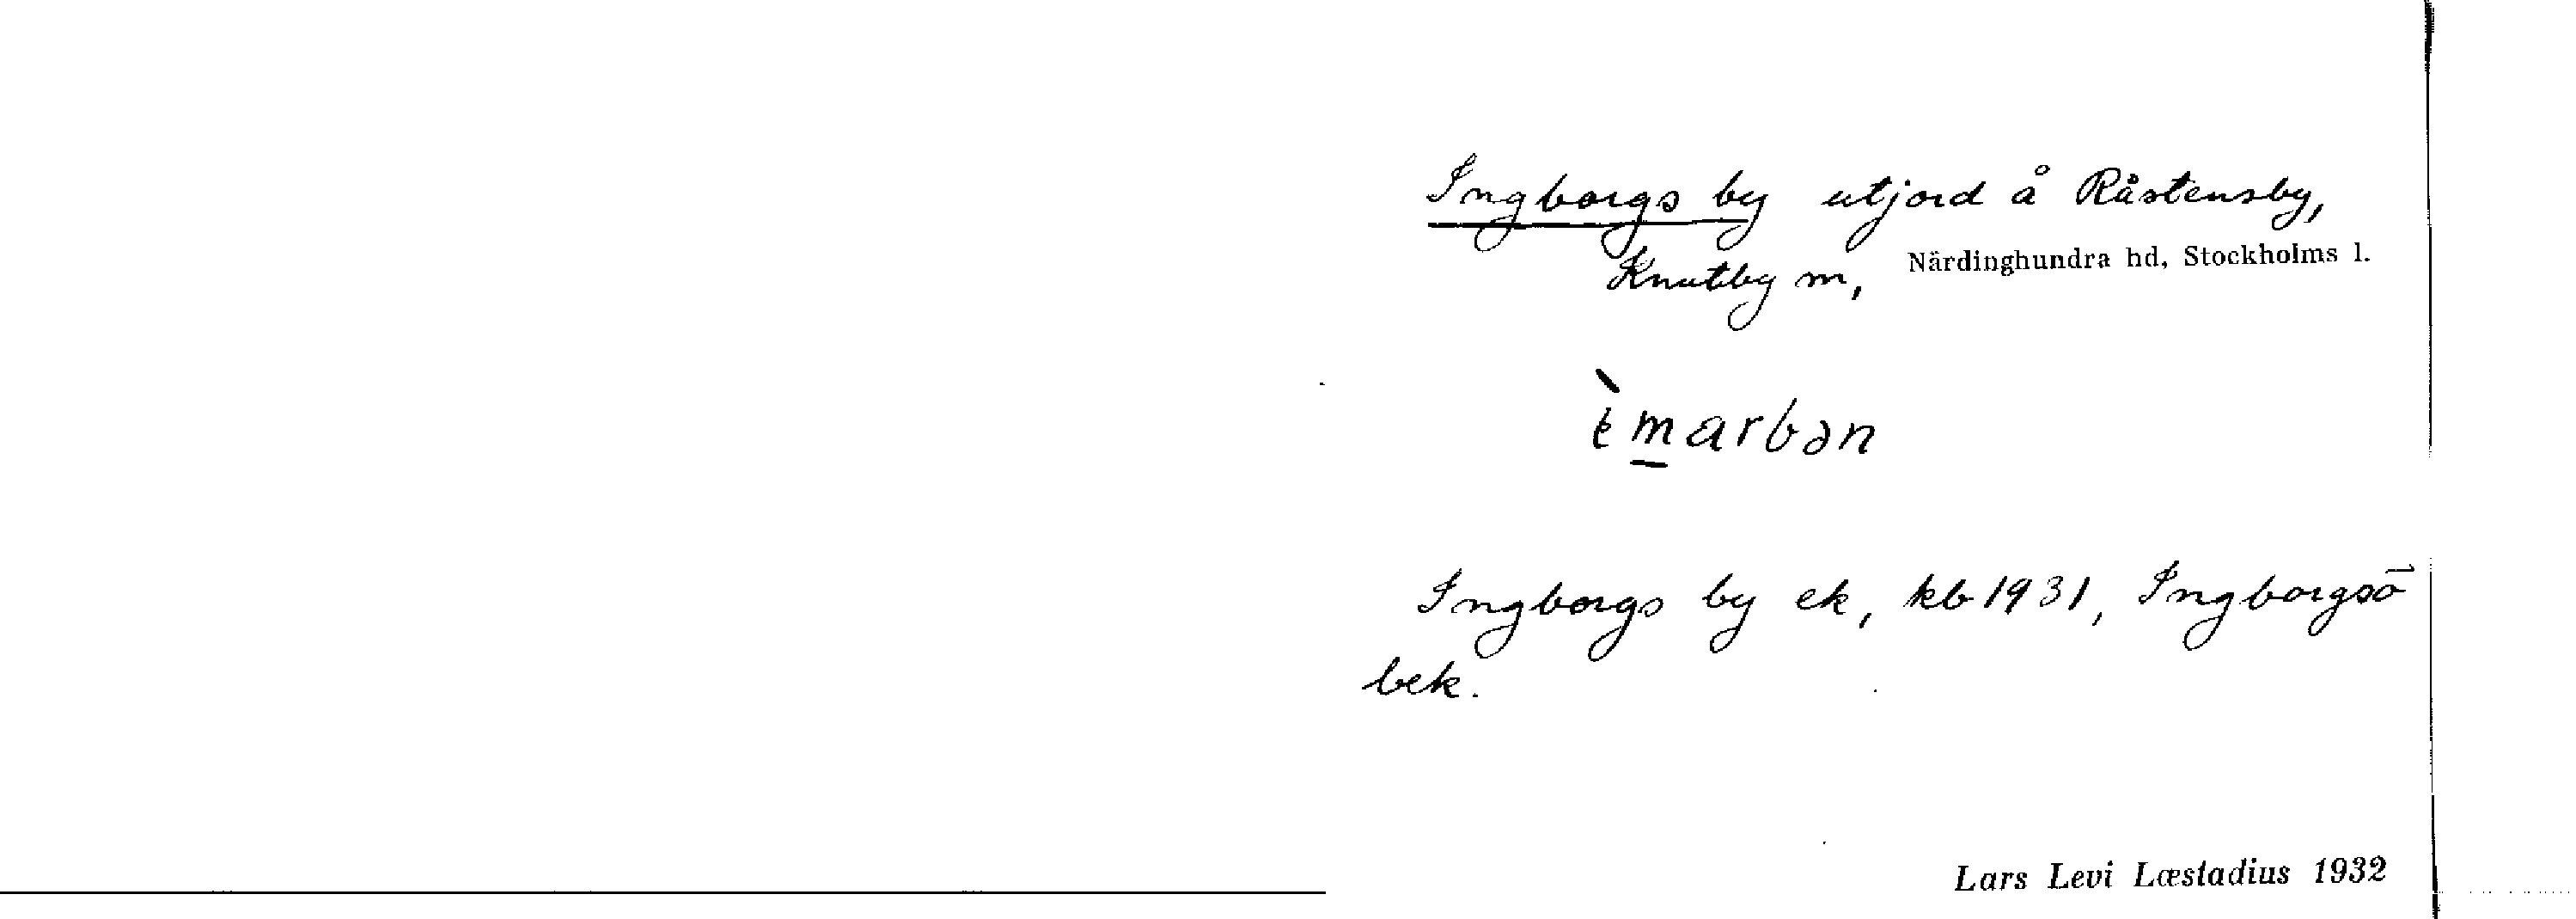 Ingborgs by utjord å Råstensby,
Knutby sn, Närdinghundra hd, Stockholms l.
èmarbən
Ingborgs by ek, kb 1931, Ingborgsō
bek.
Lars Levi Læstadius 1932